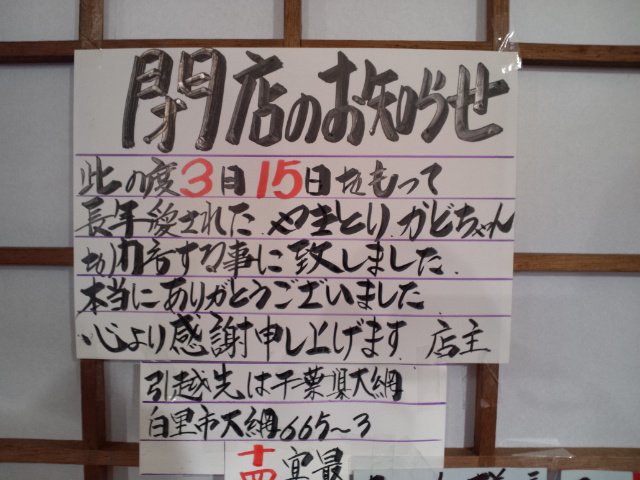 閉店のお知らせ
此の度3月15日をもって
長年愛された やきとり かどちゃん
を閉店する事に致しました.
本当にありがとうございました
心より感謝申し上げます 店主
引越先は千葉県大網
白里市大網665~3